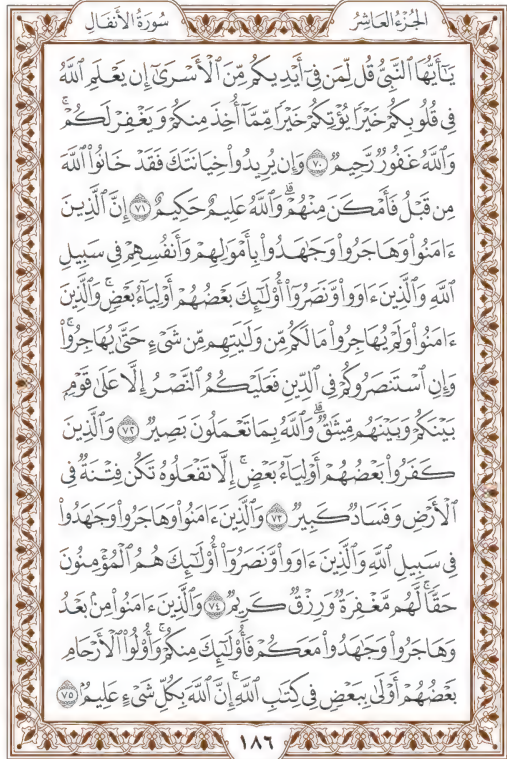 الجُزْءُ العَاشِرُ
سُورَةُ الأَنفَالِ
يَٰٓأَيُّهَا ٱلنَّبِىُّ قُل لِّمَن فِىٓ أَيْدِيكُم مِّنَ ٱلْأَسْرَىٰٓ إِن يَعْلَمِ ٱللَّهُ
فِى قُلُوبِكُمْ خَيْرًا يُؤْتِكُمْ خَيْرًا مِّمَّآ أُخِذَ مِنكُمْ وَيَغْفِرْ لَكُمْ ۚ
وَٱللَّهُ غَفُورٌ رَّحِيمٌ ٧٠ وَإِن يُرِيدُوا۟ خِيَانَتَكَ فَقَدْ خَانُوا۟ ٱللَّهَ
مِن قَبْلُ فَأَمْكَنَ مِنْهُمْ ۗ وَٱللَّهُ عَلِيمٌ حَكِيمٌ ٧١ إِنَّ ٱلَّذِينَ
ءَامَنُوا۟ وَهَاجَرُوا۟ وَجَٰهَدُوا۟ بِأَمْوَٰلِهِمْ وَأَنفُسِهِمْ فِى سَبِيلِ
ٱللَّهِ وَٱلَّذِينَ ءَاوَوا۟ وَّنَصَرُوٓا۟ أُو۟لَٰٓئِكَ بَعْضُهُمْ أَوْلِيَآءُ بَعْضٍ ۚ وَٱلَّذِينَ
ءَامَنُوا۟ وَلَمْ يُهَاجِرُوا۟ مَا لَكُم مِّن وَلَٰيَتِهِم مِّن شَىْءٍ حَتَّىٰ يُهَاجِرُوا۟ ۚ
وَإِنِ ٱسْتَنصَرُوكُمْ فِى ٱلدِّينِ فَعَلَيْكُمُ ٱلنَّصْرُ إِلَّا عَلَىٰ قَوْمٍۭ
بَيْنَكُمْ وَبَيْنَهُم مِّيثَٰقٌ ۗ وَٱللَّهُ بِمَا تَعْمَلُونَ بَصِيرٌ ٧٢ وَٱلَّذِينَ
كَفَرُوا۟ بَعْضُهُمْ أَوْلِيَآءُ بَعْضٍ ۚ إِلَّا تَفْعَلُوهُ تَكُن فِتْنَةٌ فِى
ٱلْأَرْضِ وَفَسَادٌ كَبِيرٌ ٧٣ وَٱلَّذِينَ ءَامَنُوا۟ وَهَاجَرُوا۟ وَجَٰهَدُوا۟
فِى سَبِيلِ ٱللَّهِ وَٱلَّذِينَ ءَاوَوا۟ وَّنَصَرُوٓا۟ أُو۟لَٰٓئِكَ هُمُ ٱلْمُؤْمِنُونَ
حَقًّا ۚ لَّهُم مَّغْفِرَةٌ وَرِزْقٌ كَرِيمٌ ٧٤ وَٱلَّذِينَ ءَامَنُوا۟ مِنۢ بَعْدُ
وَهَاجَرُوا۟ وَجَٰهَدُوا۟ مَعَكُمْ فَأُو۟لَٰٓئِكَ مِنكُمْ ۚ وَأُو۟لُوا۟ ٱلْأَرْحَامِ
بَعْضُهُمْ أَوْلَىٰ بِبَعْضٍ فِى كِتَٰبِ ٱللَّهِ ۗ إِنَّ ٱللَّهَ بِكُلِّ شَىْءٍ عَلِيمٌۢ ٧٥
١٨٦